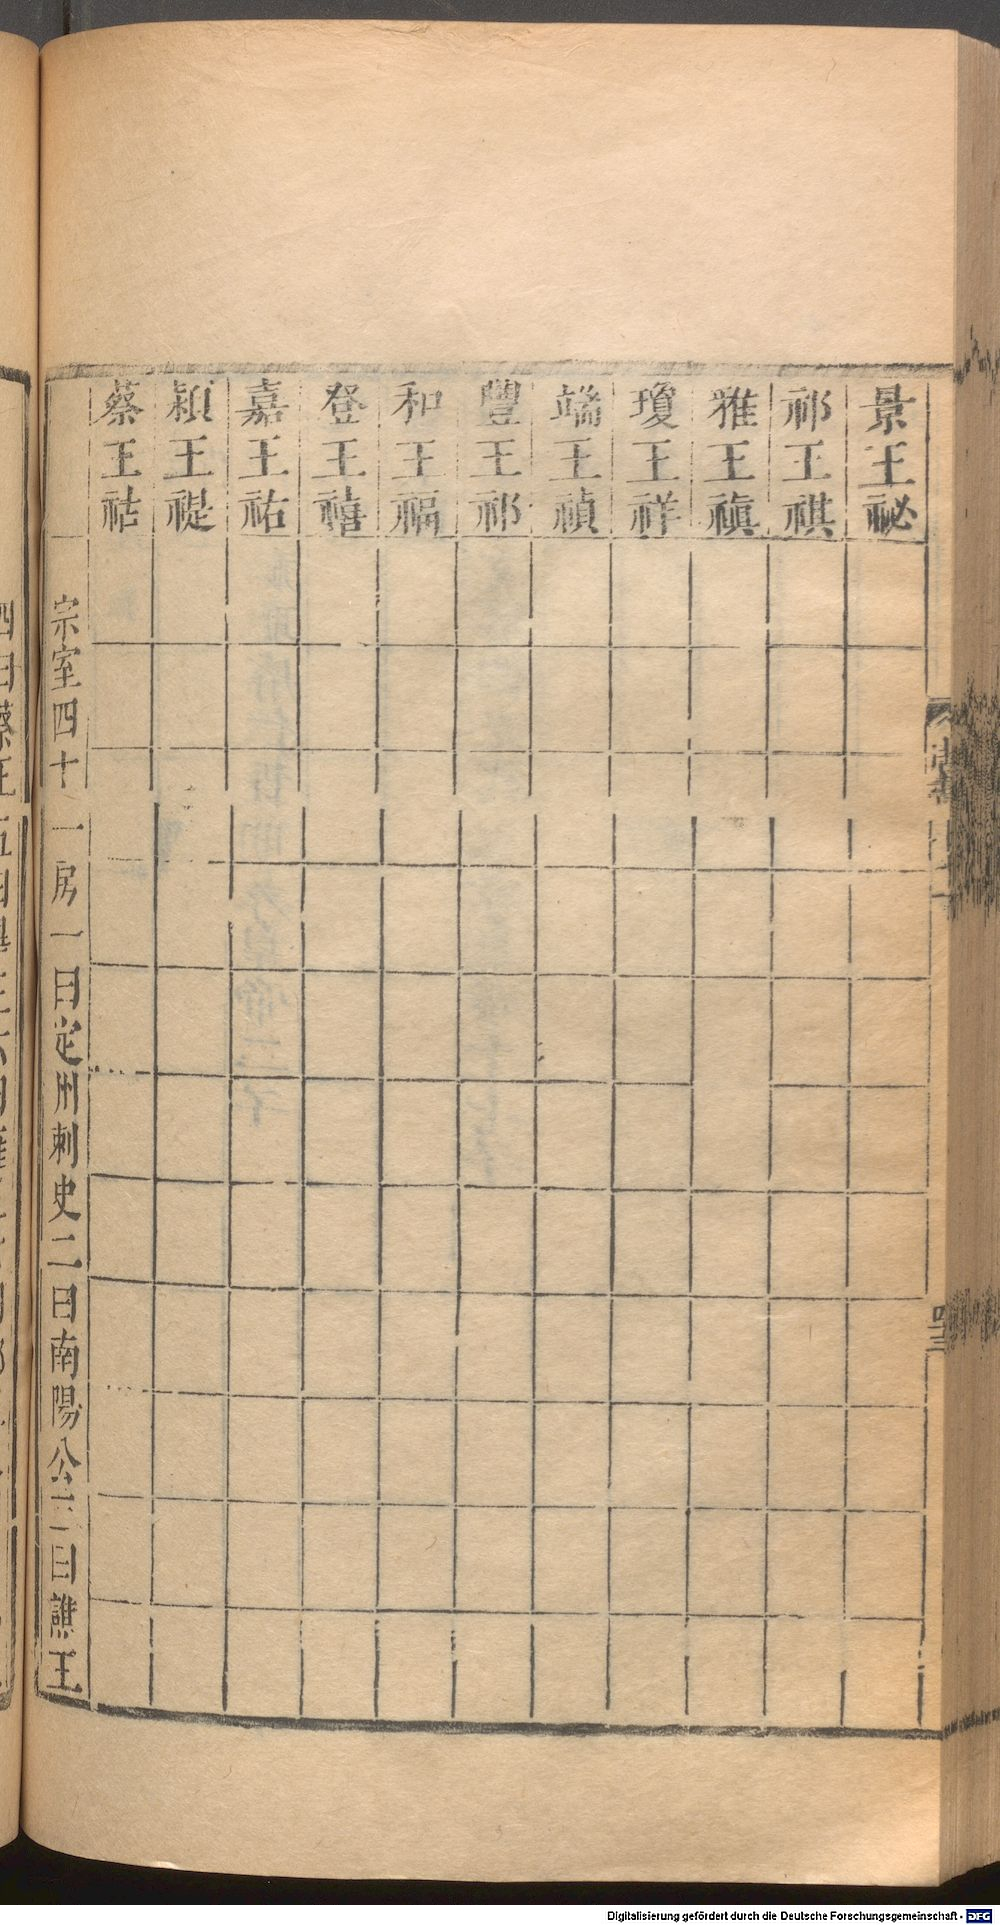 景王祕
祁王祺
雅王禛
瓊王祥
端王禎
豐王祁
和王福
登王禧
嘉王祐
潁王禔
蔡王祜
宗室四十一房一曰定州刺史二曰南陽公三曰譙王
四曰蔡王五曰
四三
Digitalisierung gefördert durch die Deutsche Forschungsgemeinschaft - DFG